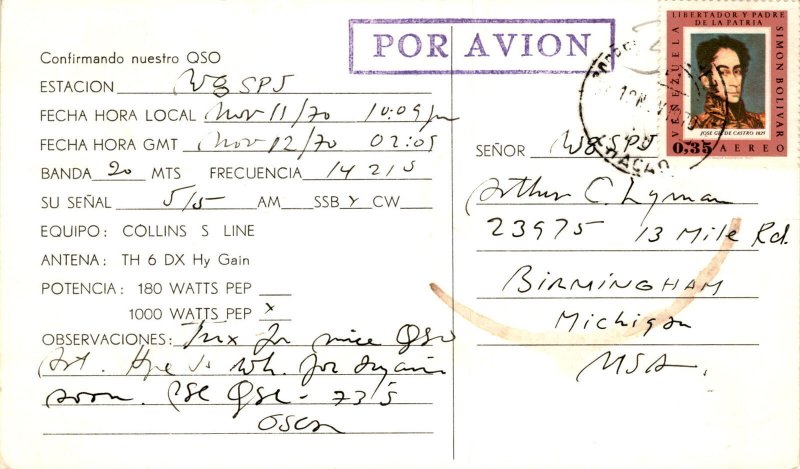 Confirmando nuestro QSO
ESTACION W8SPJ
FECHA HORA LOCAL Nov 11/70 10:09 pm
FECHA HORA GMT Nov 12/70 02:09
BANDA 20 MTS FRECUENCIA 14215
SU SEÑAL 5/5 AM SSB CW
EQUIPO: COLLINS S LINE
ANTENA: TH 6 DX Hy Gain
POTENCIA: 180 WATTS PEP
1000 WATTS PEP x
OBSERVACIONES: Tnx for nice QSO
Art. Hpe to wk. for again
soon. Pse QSL - 73's
Oscar
POR AVION
LIBERTADOR Y PADRE
DE LA PATRIA
SIMON BOLIVAR
VENEZUELA
JOSE GIL DE CASTRO 1825
0,35 AEREO
SEÑOR W8SPJ
Arthur C. Lyman
23975 13 Mile Rd.
BIRMINGHAM
Michigan
USA.